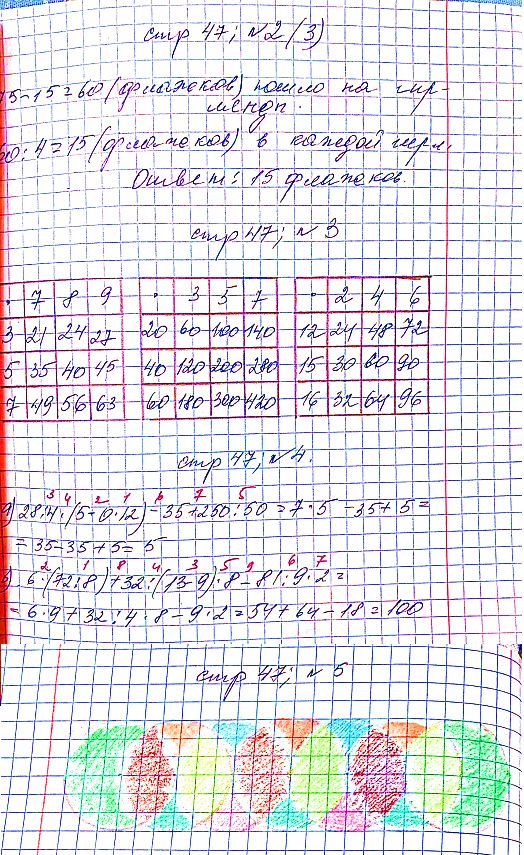 стр 47; №2 (3)
75-15=60 (флажков) пошло на гир-
лянды.
60:4=15 (флажков) в каждой гирл.
Ответ: 15 флажков.
стр 47; №3
· 7 8 9
3 21 24 27
5 35 40 45
7 49 56 63
· 3 5 7
20 60 100 140
40 120 200 280
60 180 300 420
· 2 4 6
12 24 48 72
15 30 60 90
16 32 64 96
стр 47; №4.
3 4 2 1 6 7 5
28:4·(5-0·12)-35+250:50=7·5-35+5=
=35-35+5=5
2 1 8 4 3 5 9 6 7
6·(72:8)+32:(13-9)·8-81:9·2=
=6·9+32:4·8-9·2=54+64-18=100
стр 47; №5